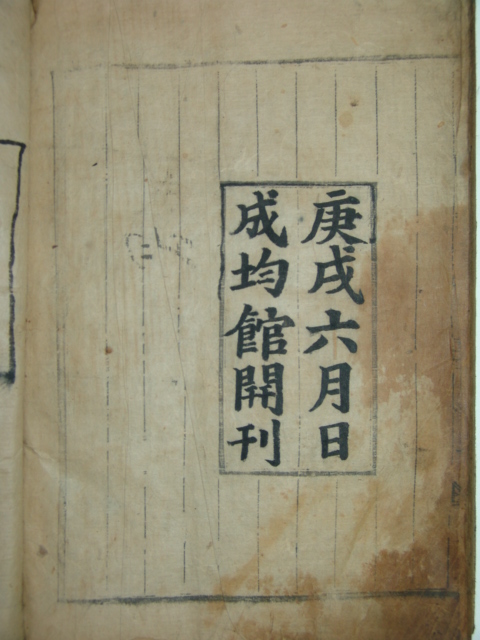 庚戌六月日
成均館開刊